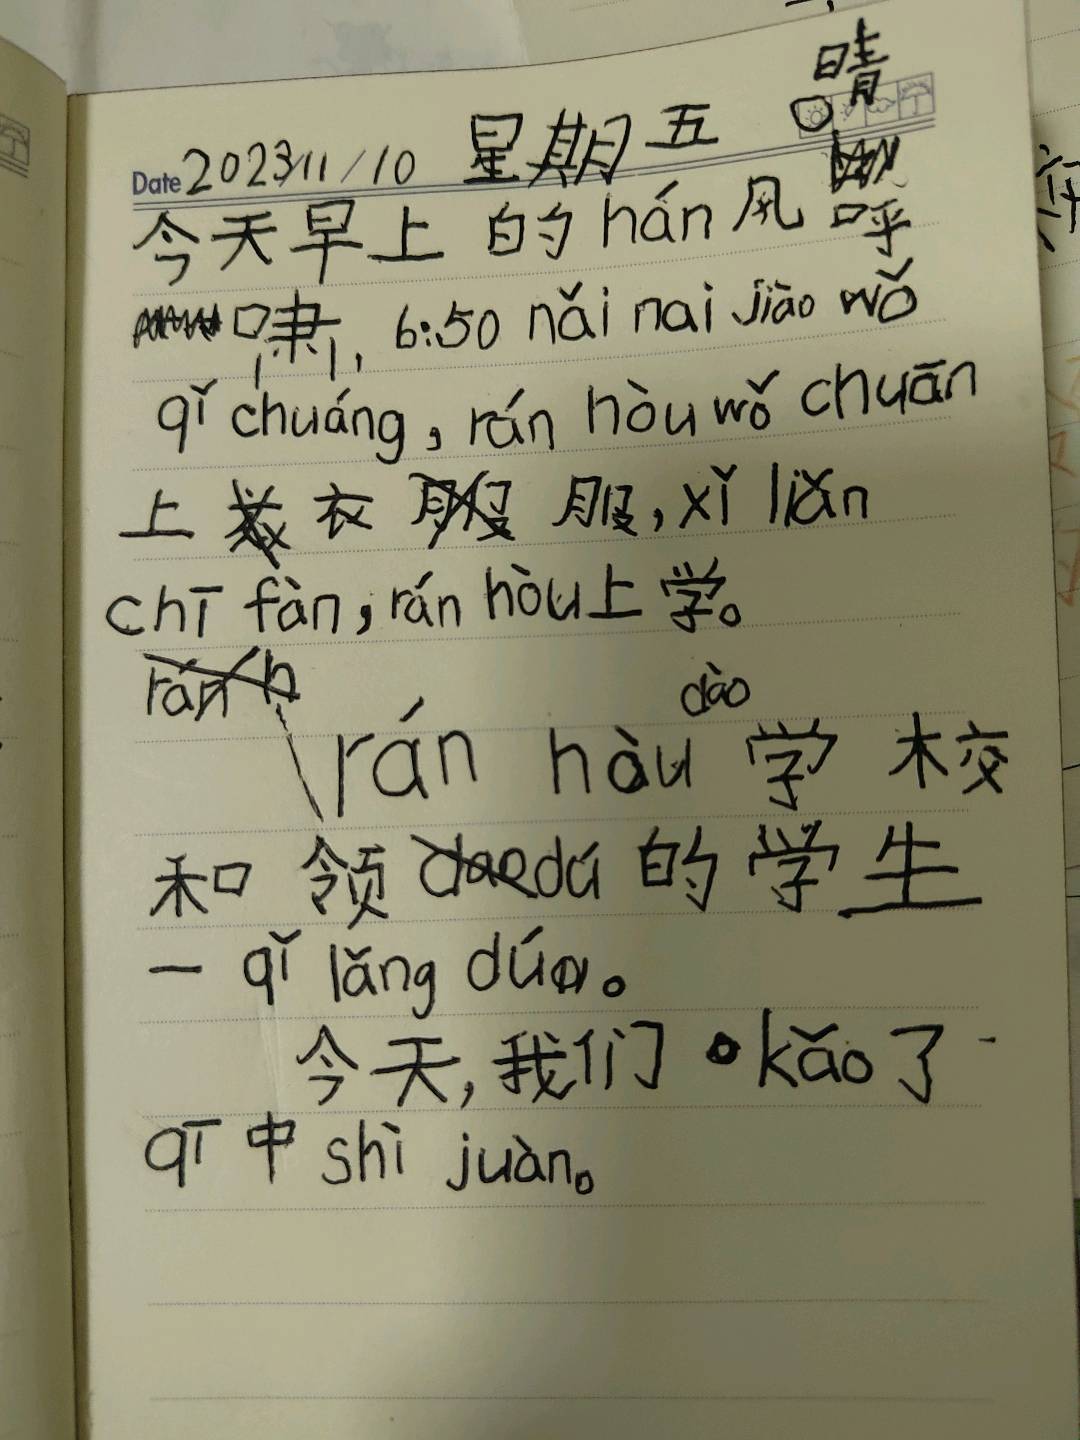 晴
Date 2023/11/10 星期五
今天早上的hán风呼
啸，6:50 nǎi nai jiào wǒ
qǐ chuáng，rán hòu wǒ chuān
上衣服，xǐ liǎn
chī fàn，rán hòu上学。
rán h
dào
rán hàu 学校
和领 dú 的学生
一qǐ lǎng dú。
今天，我们kǎo了
qī中shì juàn。